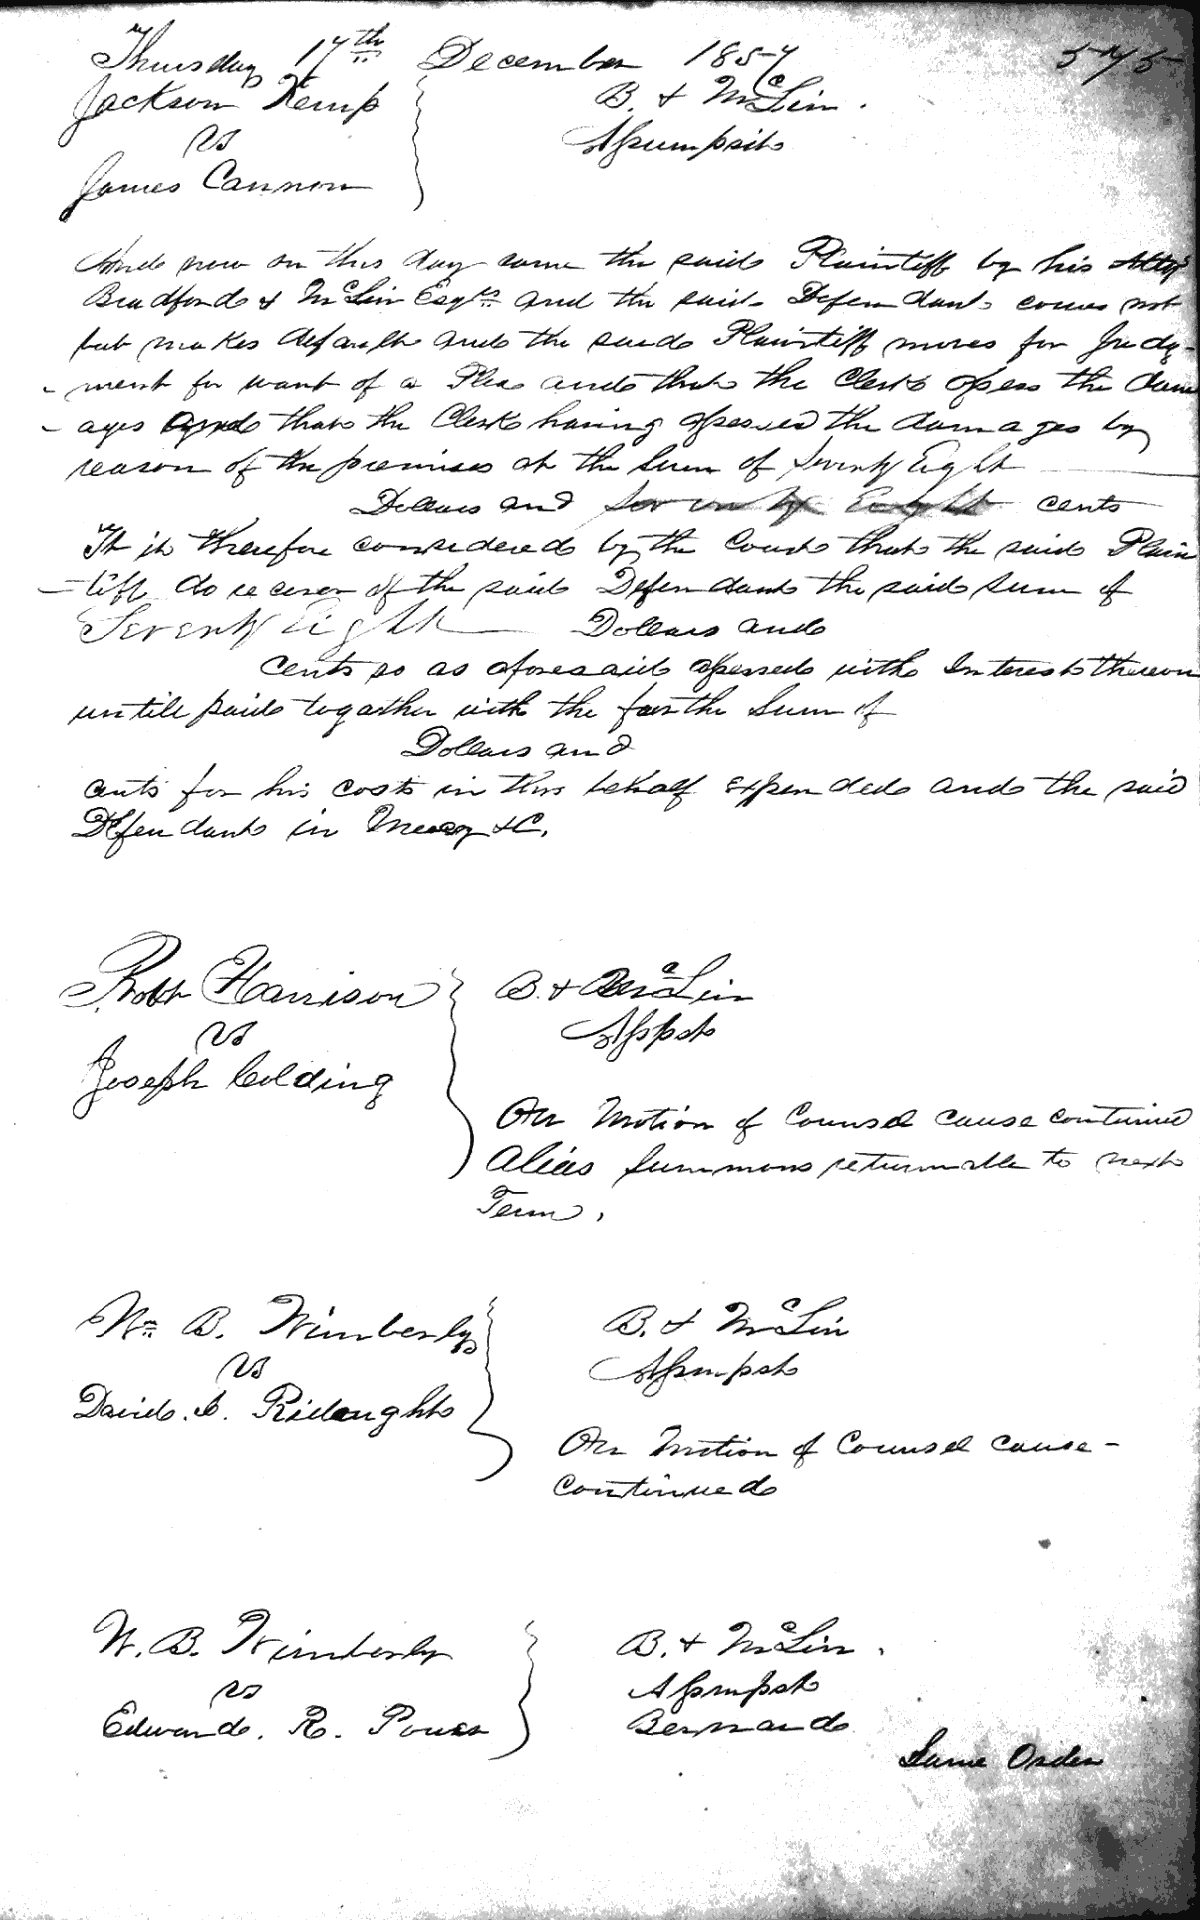 Thursday 17th December 1857 575
Jackson Kemp B. & McLin.
vs Assumpsit
James Cannon
And now on this day came the said Plaintiff by his Atty
Bradford & McLin Esqrs and the said Defendant comes not
but makes default and the said Plaintiff moves for Judg-
-ment for want of a Plea and that the Clerk assess the dam
-ages and that the Clerk having assessed the damages by
reason of the premises at the Sum of Seventy Eight
Dollars and Seventy Eight cents
It is therefore considered by the Court that the said Plain
-tiff do recover of the said Defendant the said sum of
Seventy Eight Dollars and
cents so as aforesaid assessed with Interest thereon
untill paid together with the further Sum of
Dollars and
cents for his costs in this behalf expended and the said
Defendant in Mercy &C.
Robt Harrison B. & McLin
vs Asspst
Joseph Colding
On Motion of Counsel cause continued
Alias Summons returnable to next
Term.
Wm B. Wimberly B. & McLin
vs Assmpst
David. S. Ridaught
On Motion of Counsel cause-
continued
W. B. Wimberly B. & McLin.
vs Assmpst
Edward. R. Powers Bernard
Same Order